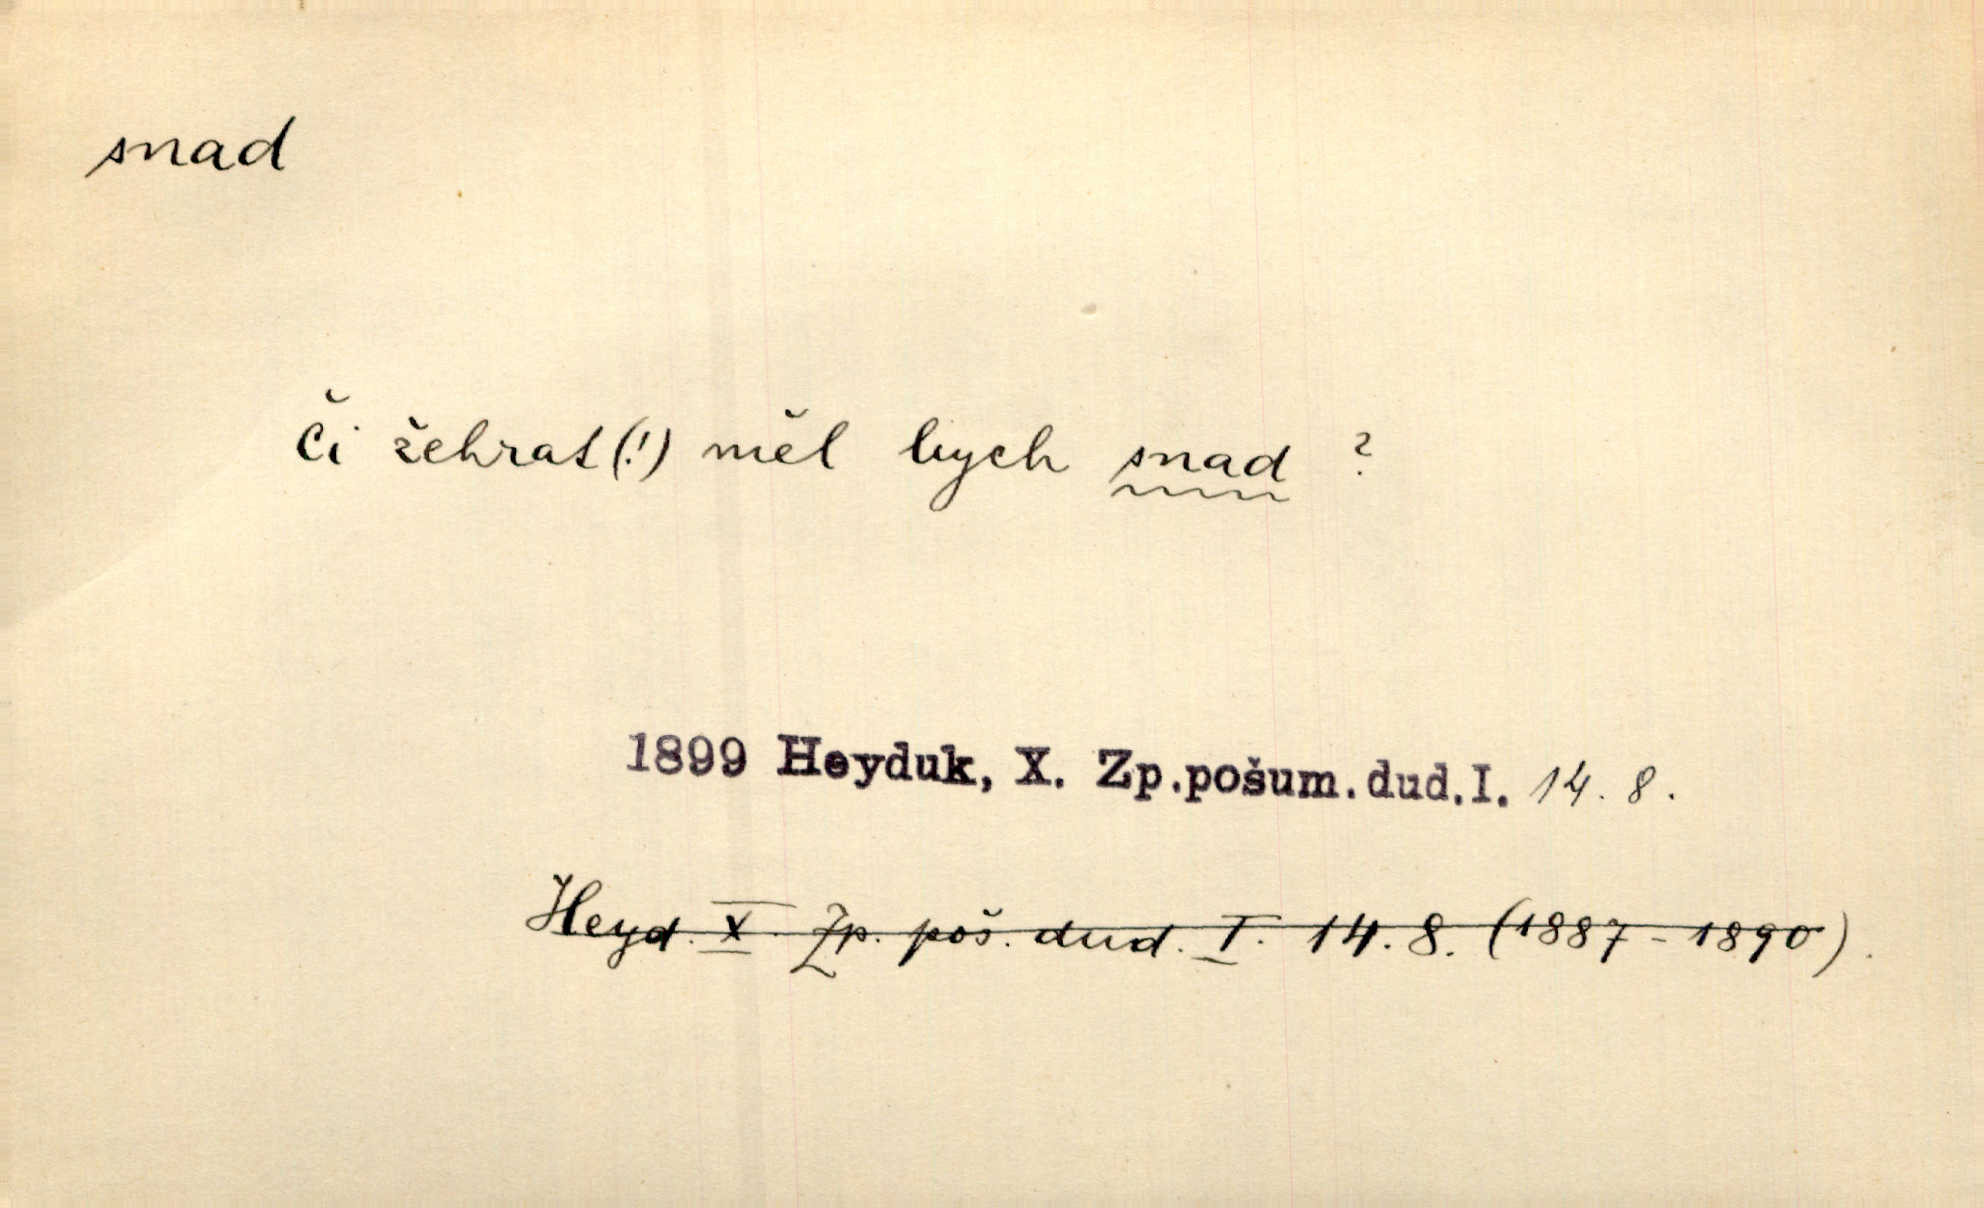 snad
Či žehrat(!) měl bych snad ?
1899 Heyduk, X. Zp.pošum.dud.I. 14. 8.
Heyd. X. Zp. poš. dud. I. 14. 8. (1887 - 1890).